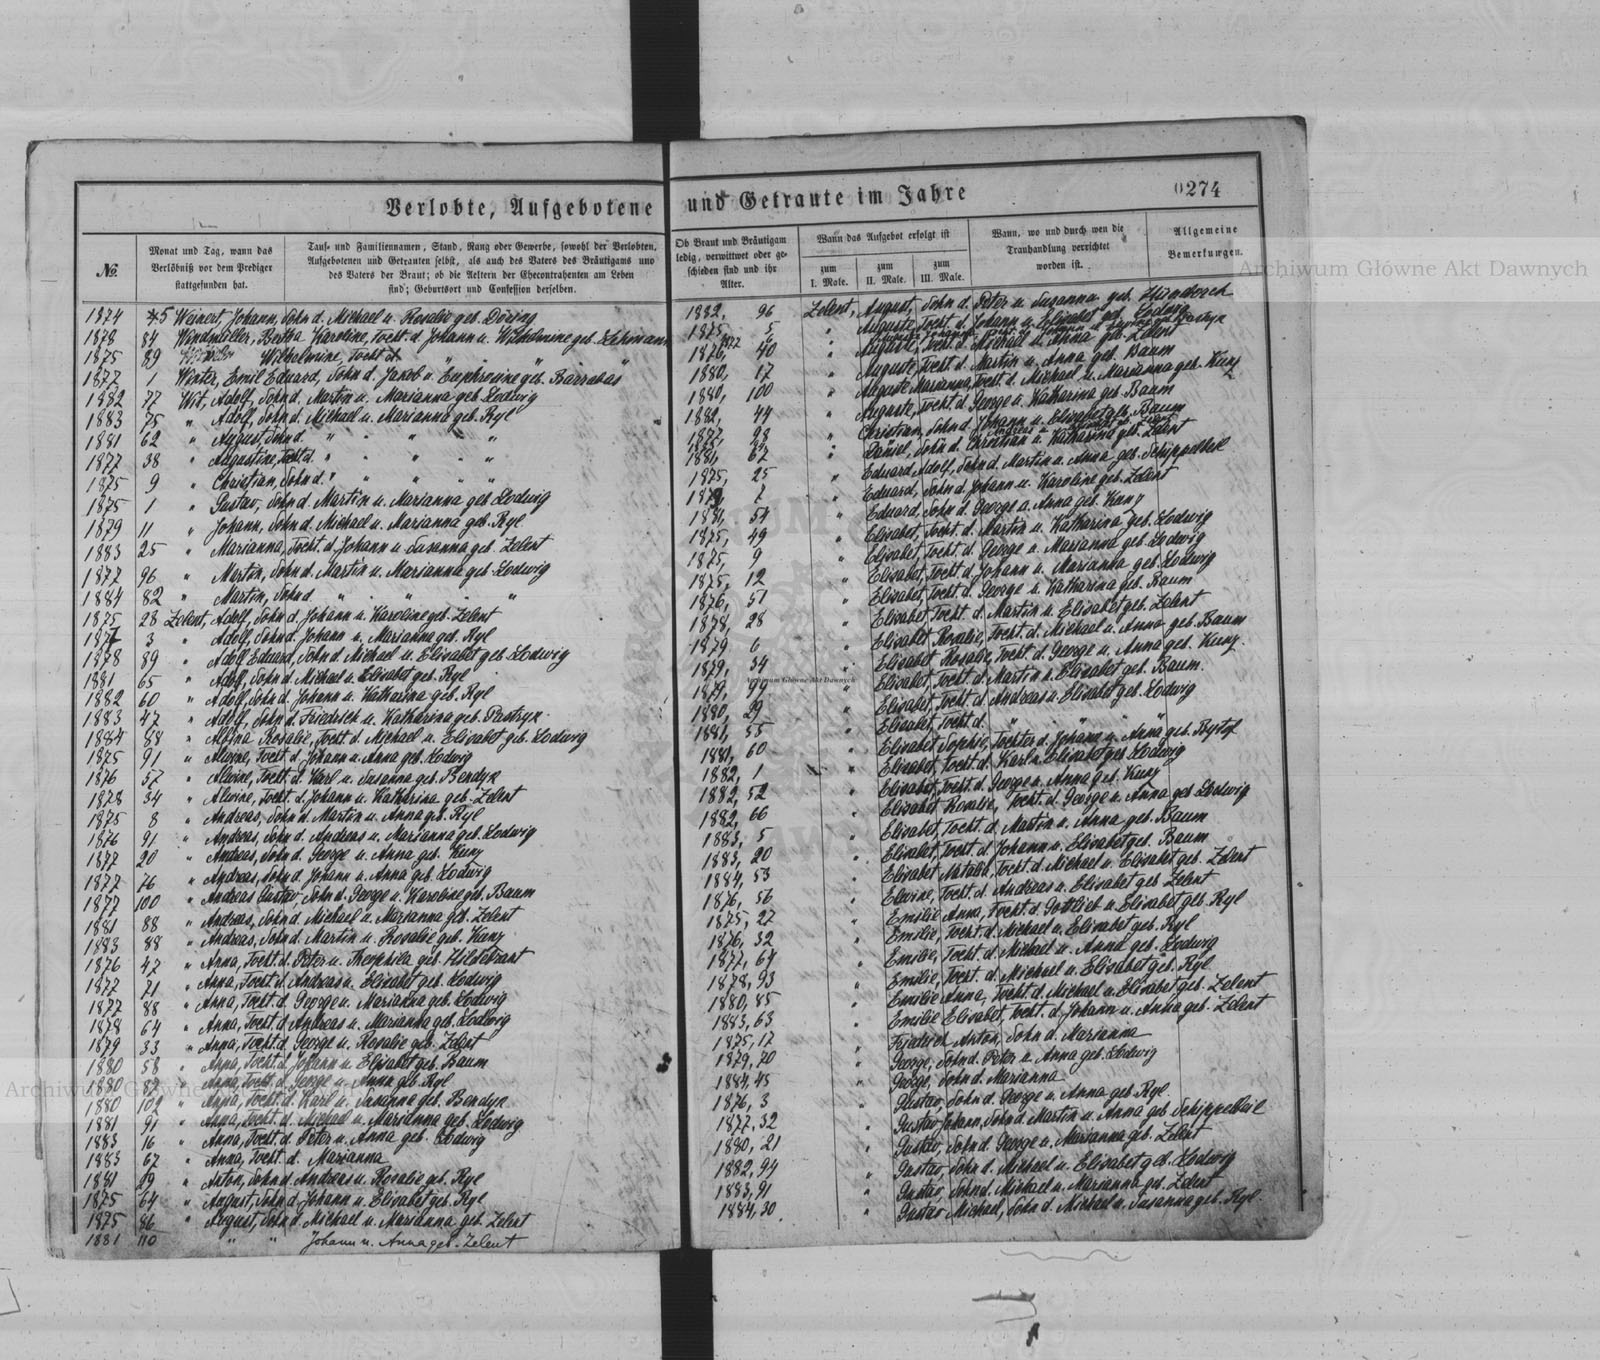 Verlobte, Aufgebotene
№
Monat und Tag, wann das
Verlöbniß vor dem Prediger
stattgefunden hat.
Tauf- und Familiennamen, Stand, Rang oder Gewerbe, sowohl der Verlobten,
Aufgebotenen und Getrauten selbst, als auch des Vaters des Bräutigams und
des Vaters der Braut; ob die Aeltern der Ehecontrahenten am Leben
sind; Geburtsort und Confession derselben.
1874 5 Weinert, Johann, Sohn d. Michael u. Rosalie geb. Döring
1878 84 Windmüller, Berta Karoline, Tocht. d. Johann u. Wilhelmine geb. Lehmann
1875 89 Wilhelmine, Tocht. d. " " " "
1877 1 Winter, Emil Eduard, Sohn d. Jakob u. Euphrosine geb. Barrabas
1882 77 Wit, Adolf, Sohn d. Martin u. Marianna geb. Lodwig
1883 75 " Adolf, Sohn d. Michael u. Marianna geb. Ryl
1881 62 " August, Sohn d. " " " "
1877 38 " Augustine, Tocht. d. " " " "
1875 9 " Christian, Sohn d. " " " "
1875 1 " Gustav, Sohn d. Martin u. Marianna geb. Lodwig
1879 11 " Johann, Sohn d. Michael u. Marianna geb. Ryl
1883 25 " Marianna, Tocht. d. Johann u. Susanna geb. Zelent
1877 96 " Martin, Sohn d. Martin u. Marianna geb. Lodwig
1884 82 " Martin, Sohn d. " " " "
1875 28 Zelent, Adolf, Sohn d. Johann u. Karoline geb. Zelent
1877 3 " Adolf, Sohn d. Johann u. Marianna geb. Ryl
1878 89 " Adolf Eduard, Sohn d. Michael u. Elisabet geb. Lodwig
1881 65 " Adolf, Sohn d. Michael u. Elisabet geb. Ryl
1882 60 " Adolf, Sohn d. Johann u. Katharina geb. Ryl
1883 47 " Adolf, Sohn d. Friedrich u. Katharina geb. Pastryk
1884 88 " Albina Rosalie, Tocht. d. Michael u. Elisabet geb. Lodwig
1875 91 " Alwine, Tocht. d. Johann u. Anna geb. Lodwig
1876 57 " Alwine, Tocht. d. Karl u. Susanna geb. Bendyk
1878 34 " Alwine, Tocht. d. Johann u. Katharina geb. Zelent
1875 8 " Andreas, Sohn d. Martin u. Anna geb. Ryl
1876 91 " Andreas, Sohn d. Andreas u. Marianna geb. Lodwig
1877 20 " Andreas, Sohn d. George u. Anna geb. Kuny
1877 76 " Andreas, Sohn d. Johann u. Anna geb. Lodwig
1877 100 " Andreas Gustav, Sohn d. George u. Karoline geb. Baum
1881 88 " Andreas, Sohn d. Michael u. Marianna geb. Zelent
1883 88 " Andreas, Sohn d. Martin u. Rosalie geb. Kuny
1876 47 " Anna, Tocht. d. Peter u. Theophila geb. Hildebrant
1877 71 " Anna, Tocht. d. Andreas u. Elisabet geb. Lodwig
1877 88 " Anna, Tocht. d. George u. Marianna geb. Lodwig
1878 64 " Anna, Tocht. d. Andreas u. Marianna geb. Lodwig
1879 33 " Anna, Tocht. d. George u. Rosalie geb. Zelent
1880 58 " Anna, Tocht. d. Johann u. Elisabet geb. Baum
1880 87 " Anna, Tocht. d. George u. Anna geb. Ryl
1880 102 " Anna, Tocht. d. Karl u. Susanna geb. Bendyk
1881 91 " Anna, Tocht. d. Michael u. Marianna geb. Lodwig
1883 16 " Anna, Tocht. d. Peter u. Anna geb. Lodwig
1883 67 " Anna, Tocht. d. Marianna
1881 29 " Anton, Sohn d. Andreas u. Rosalie geb. Ryl
1875 64 " August, Sohn d. Johann u. Elisabet geb. Ryl
1875 86 " August, Sohn d. Michael u. Marianna geb. Zelent
1881 110 " " Johann u. Anna geb. Zelent
und Getraute im Jahre
0274
Ob Braut und Bräutigam
ledig, verwittwet oder ge-
schieden sind und ihr
Alter.
Wann das Aufgebot erfolgt ist
zum
I. Male.
zum
II. Male.
zum
III. Male.
Wann, wo und durch wen die
Trauhandlung verrichtet
worden ist.
Allgemeine
Bemerkungen.
1882, 96 Zelent, August, Sohn d. Peter u. Susanna geb.
1875, 5 " Auguste, Tocht. d. Johann u. Elisabet geb. Lodwig
1876, 40 " Auguste, Tocht. d. Michael u. Anna geb. Zelent
1880, 17 " Auguste, Tocht. d. Martin u. Anna geb. Baum
1880, 100 " Auguste Marianna, Tocht. d. Michael u. Marianna geb. Kuny
1882, 44 " Auguste, Tocht. d. George u. Katharina geb. Baum
28 " Christian, Sohn d. Johann u. Elisabet geb. Baum
1881, 62 " Daniel, Sohn d. Christian u. Katharina geb. Zelent
1875, 25 " Eduard Adolf, Sohn d. Martin u. Anna geb. Schippelbeil
7 " Eduard, Sohn d. Johann u. Karoline geb. Zelent
1881, 54 " Eduard, Sohn d. George u. Anna geb. Kuny
1875, 49 " Elisabet, Tocht. d. Martin u. Katharina geb. Lodwig
1875, 9 " Elisabet, Tocht. d. George u. Marianna geb. Lodwig
1875, 12 " Elisabet, Tocht. d. Johann u. Marianna geb. Lodwig
1876, 51 " Elisabet, Tocht. d. George u. Katharina geb. Baum
1878, 28 " Elisabet, Tocht. d. Martin u. Elisabet geb. Zelent
1879 6 " Elisabet Rosalie, Tocht. d. Michael u. Anna geb. Baum
1879, 34 " Elisabet Rosalie, Tocht. d. George u. Anna geb. Kuny
1879, 99 " Elisabet, Tocht. d. Martin u. Elisabet geb. Baum
1880, 29 " Elisabet, Tocht. d. Andreas u. Elisabet geb. Lodwig
1881, 55 " Elisabet, Tocht. d. " " " "
1881, 60 " Elisabet Sophie, Tochter d. Johann u. Anna geb. Rystof
1882, 1 " Elisabet, Tocht. d. Karl u. Elisabet geb. Lodwig
1882, 52 " Elisabet, Tocht. d. George u. Anna geb. Kuny
1882, 66 " Elisabet Rosalie, Tocht. d. George u. Anna geb. Lodwig
1883, 5 " Elisabet, Tocht. d. Martin u. Anna geb. Baum
1883, 20 " Elisabet, Tocht. d. Johann u. Elisabet geb. Baum
1884, 53 " Elisabet Natalia, Tocht. d. Michael u. Elisabet geb. Zelent
1876, 56 " Elwine, Tocht. d. Andreas u. Elisabet geb. Zelent
1875, 27 " Emilie Anna, Tocht. d. Gottlieb u. Elisabet geb. Ryl
1876, 32 " Emilie, Tocht. d. Michael u. Elisabet geb. Ryl
1877, 64 " Emilie, Tocht. d. Michael u. Anna geb. Lodwig
1878, 93 " Emilie, Tocht. d. Michael u. Elisabet geb. Ryl
1880, 85 " Emilie Anna, Tocht. d. Michael u. Elisabet geb. Zelent
1883, 63 " Emilie Elisabet, Tocht. d. Johann u. Anna geb. Zelent
1875, 17 " Anton, Sohn d. Marianna
1879, 70 " George, Sohn d. Peter u. Anna geb. Lodwig
1884, 45 " George, Sohn d. Marianna
1876, 3 " Gustav, Sohn d. George u. Anna geb. Ryl
1877, 32 " Gustav Johann, Sohn d. Martin u. Anna geb. Schippelbeil
1880, 21 " Gustav, Sohn d. George u. Marianna geb. Zelent
1882, 94 " Gustav, Sohn d. Michael u. Elisabet geb. Lodwig
1883, 91 " Gustav, Sohn d. Michael u. Marianna geb. Zelent
1884, 30 " Gustav Michael, Sohn d. Michael u. Susanna geb. Ryl
Archiwum Główne Akt Dawnych
Archiwum Główne Akt Dawnych
Archiwum Główne